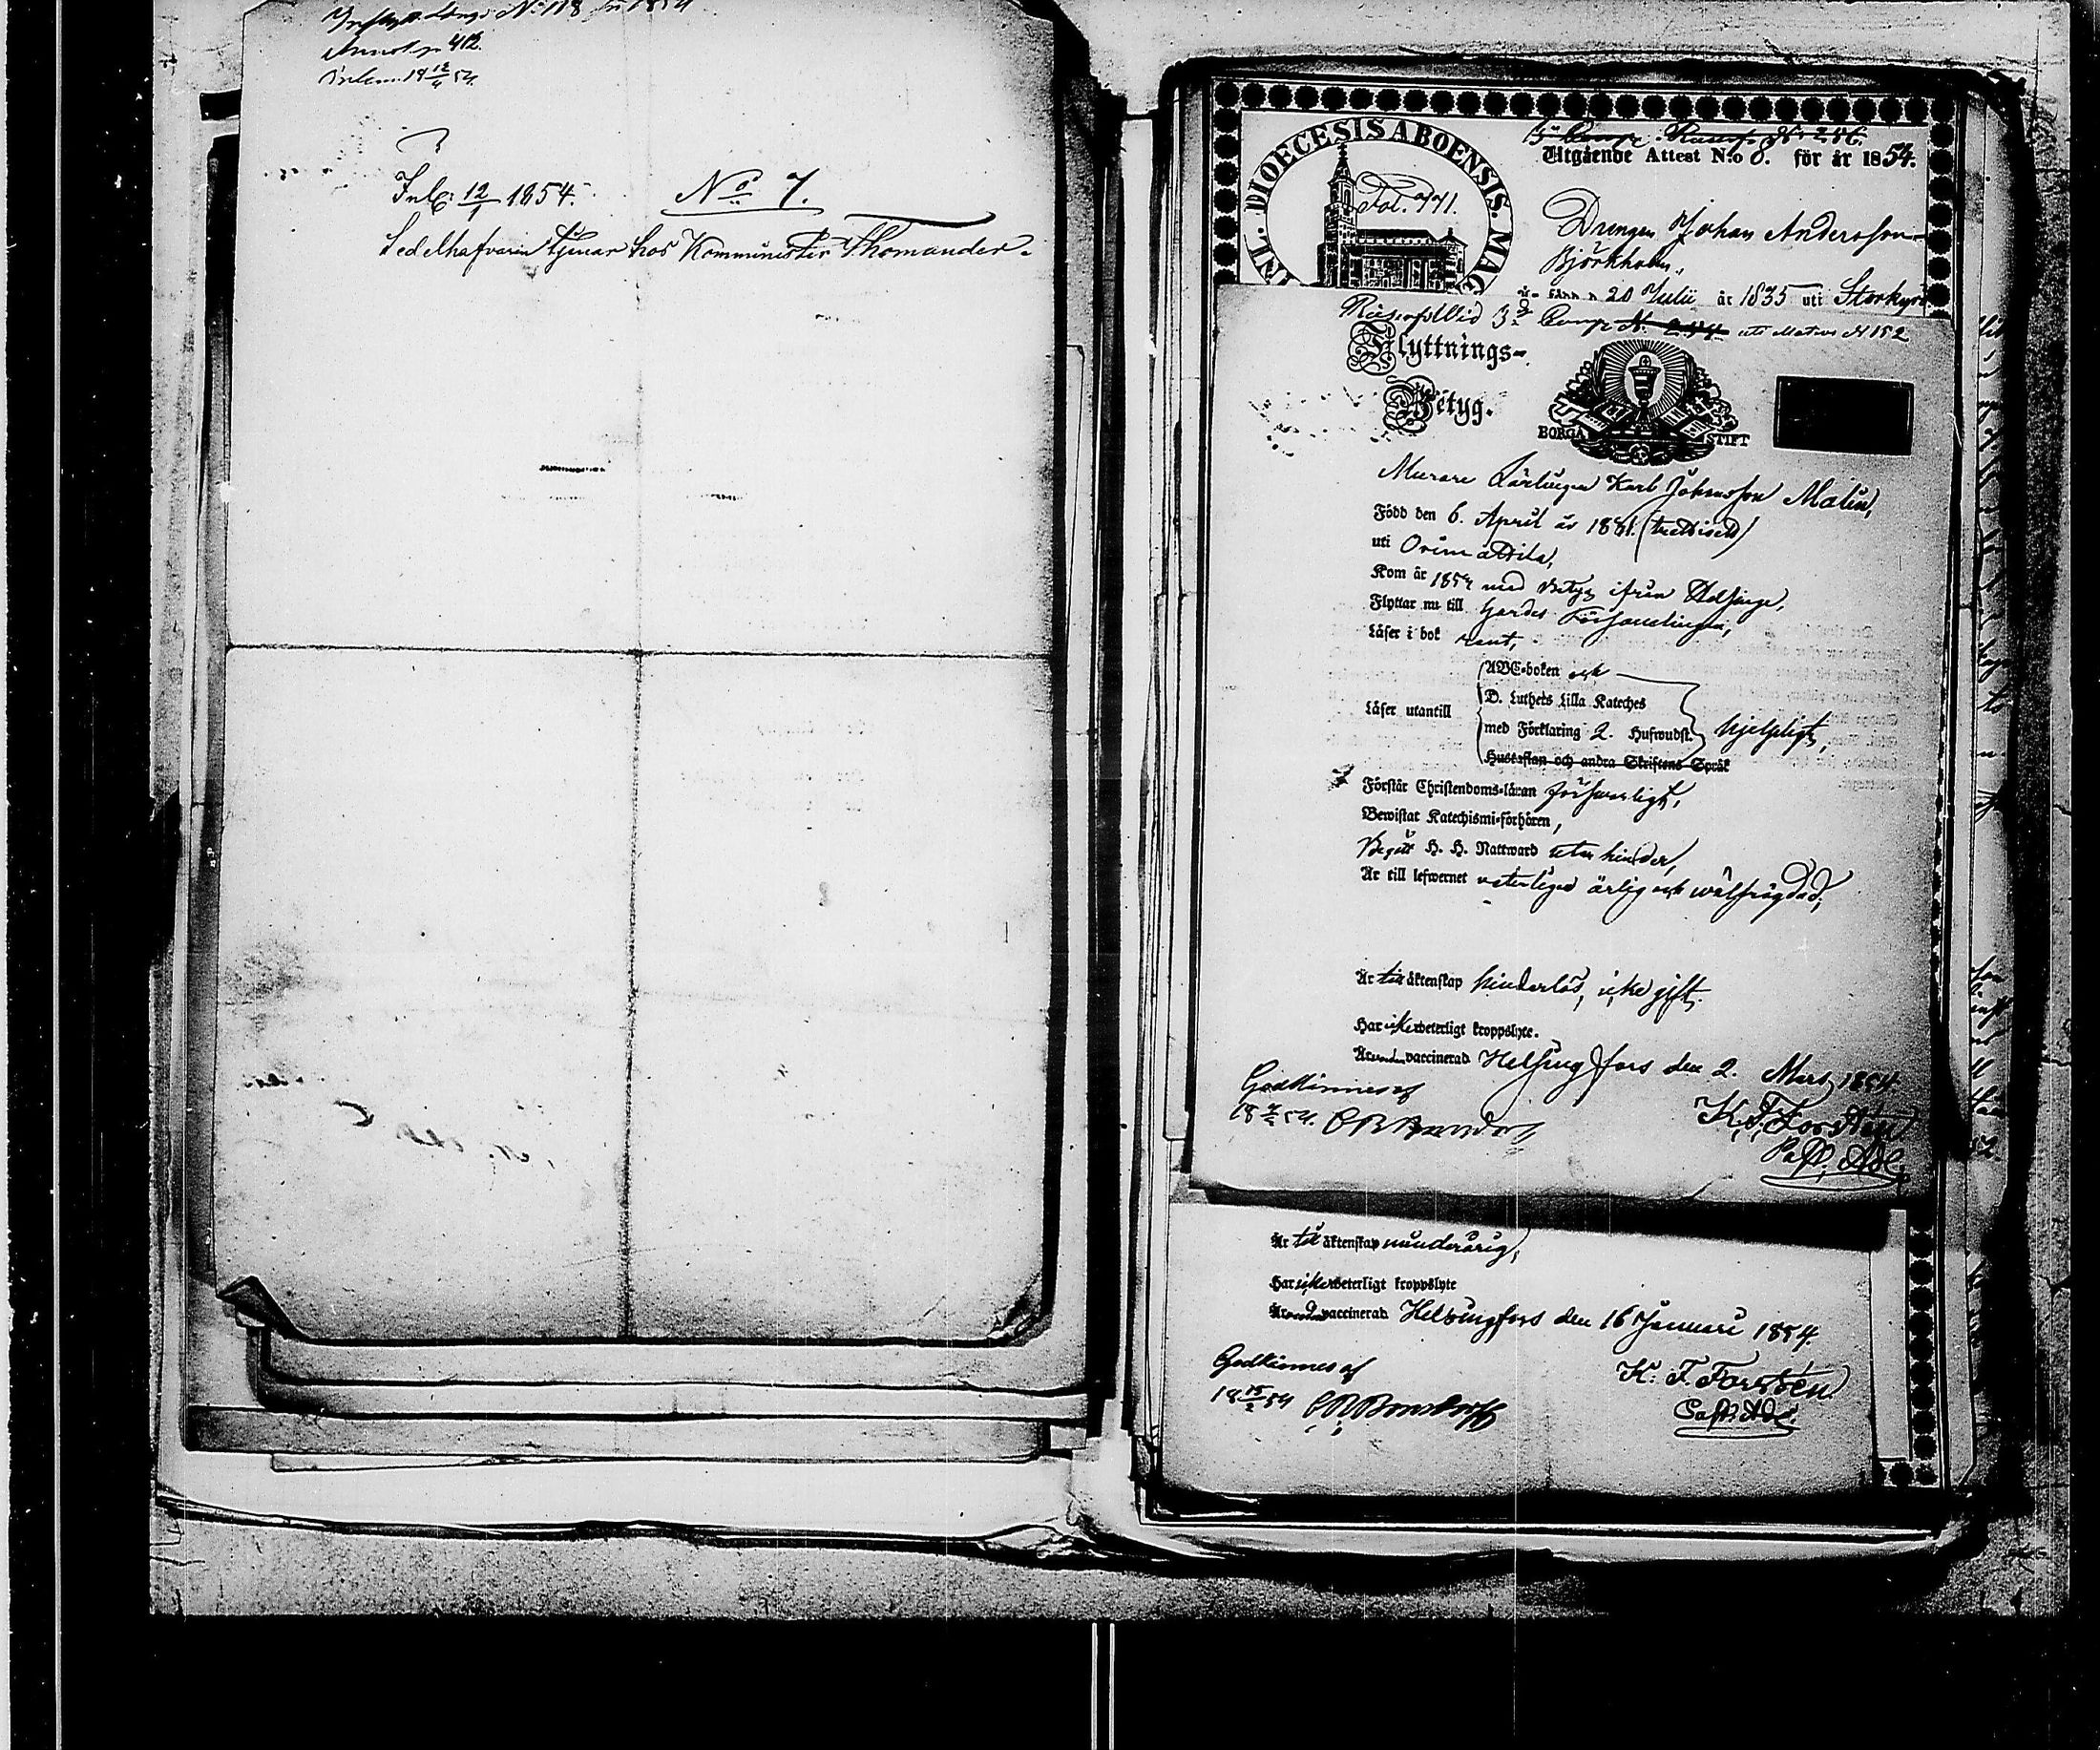 Inflyttn. Läng. No 118 för 1854
Annot. p. 412.
Inlem. 18 12/4 54.
Inl: 12/1 1854. No 7.
Sedelhafvaren tjenar hos Kommunister Thomander.
INL. DIOECESIS ABOENSIS. MAG
Fol. 771.
3e Comp. No 256.
Utgående Attest N:o 8. för år 1854.
Drengen Johan Andersson
Björkholm,
är född d. 20 Julii år 1835 uti Storkyro
vid 3e Comp. N. uti Matrs N 152
Flyttnings-
Betyg.
BORGÅ STIFT
Murare Lärlingen Karl Johansson Malin,
Född den 6. April år 1831. (trettioett)
uti Orimattila,
Kom år 1854 med Betyg ifrån Helsinge,
Flyttar nu till Gardes Församlingen,
Läser i bok rent,
ABC-boken och
D. Luthers Lilla Kateches
Läser utantill
med Förklaring 2. Hufwudst. hjelpligt,
Hustaflan och andra Skriftens Språk
Förstår Christendoms-läran försvarligt,
Bewistat Katechismi-förhören,
Begått H. H. Nattward utan hinder,
Är till lefwernet veterligen ärlig och wälfrägdad,
Är till äktenskap hinderlös, icke gift.
Har icke weterligt kroppslyte.
Är vaccinerad Helsingfors den 2. Mars 1854.
Godkännes af
K. F. Forstén
Past. Adj.
Är till äktenskap minderårig,
Har icke weterligt kroppslyte
Är vaccinerad Helsingfors den 16 Januari 1854.
Godkännes af
K. F. Forstén
18 15/2 54 Bonsdorff
Past. Adj.